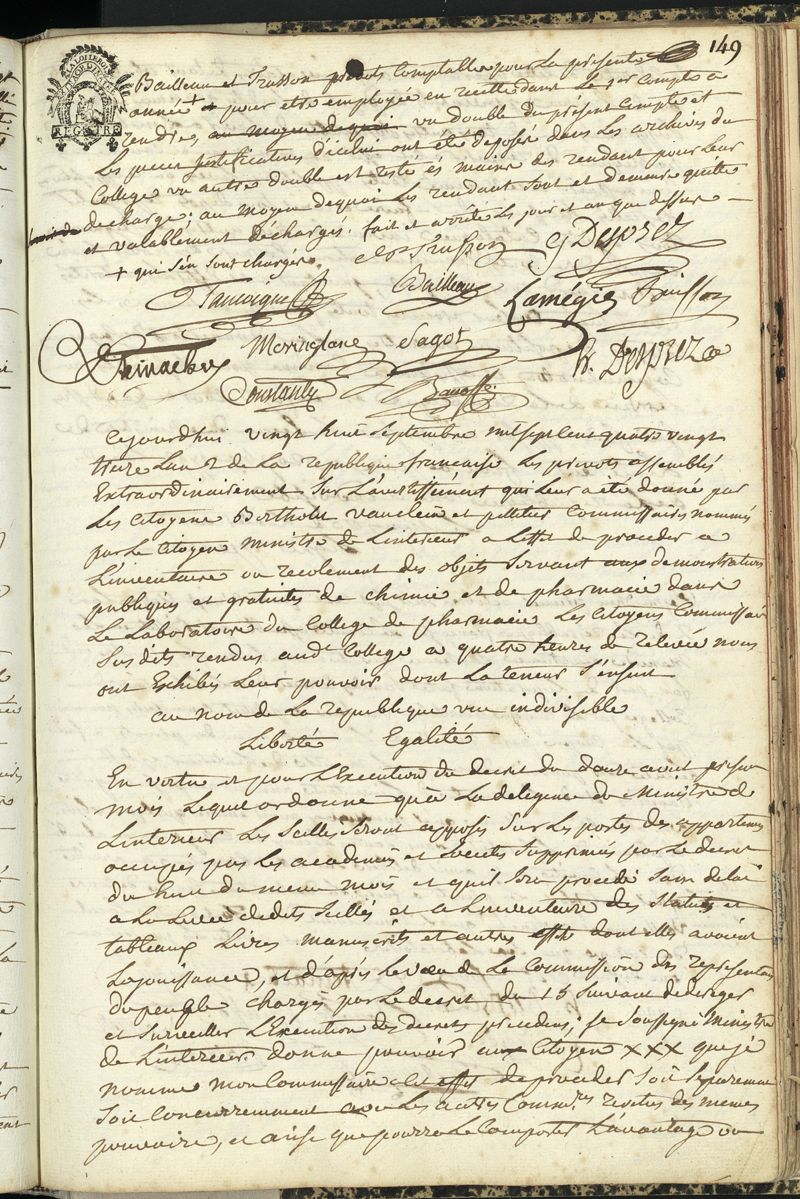 149
LA LOI LE ROI
REGISTRE
Bailleau et Trusson prevots Comptable pour La presente
année + pour etre employée en recette dans Le 1er Compte a
rendre, au moyen de quoi un double du present Compte et
Les pieces justificatives d'icelui ont été deposés dans Les archives du
College un autre double est resté és mains des rendant pour Leur
decharge; au moyen dequoi Les rendant sont et demeure quitte
et valablement déchargés. fait et arrêté Les jour et an que dessus
+ qui s'en sont chargés.
Trusson G Deyeux
Bailleau Lamégie Buisson
Moringlane Sagot
Costantin
Cejourdhui vingt huit Septembre mil sept Cent quatre vingt
treize Lan 2 de La republique francaise Les prevots assemblés
Extraordinairement sur L'avertissement qui Leur a été donné par
Les Citoyens Bertholet vauclein et pelletier Commissaires nommés
par Le Citoyen ministre de Linterieur a Leffet de proceder a
L'inventaire ou recolement des objets servant aux demonstrations
publiques et gratuites de chimie et de pharmacie dans
Le Laboratoire du College de pharmacie Les Citoyens Commissai
Susdits rendus aud. College a quatre heures de relevée nous
ont Exhibés Leur pouvoir dont La teneur s'ensuit
au nom de La republique une indivisible
Liberté Egalité
En vertu et pour L'Execution du decret du douze aout
mois Lequel ordonne qu'a La deligence du Ministre de
Linterieur Les Scellés seront apposés sur Les portes des appartemens
occupés par Les academies et Societés supprimées par Le decret
du huit du meme mois et qu'il sera procedé sans delai
a La Levée desdits Scellés et a L'inventaire des Statues et
tableaux Livres manuscrits et autres effets dont elles avoient
La jouissance, et d'après Le voeu de La Commission des representans
du peuple chargés par Le decret du 15 suivant de diriger
et surveiller L'Execution des decrets precedens; je soussigné Ministre
de L'interieur donne pouvoir au Citoyen XXX que je
nomme mon Commissaire a cet effet de proceder soit separement
soit concurremment avec Les autres Comm.res revetus des memes
pouvoirs, et ainsi que pourra Le Comporter L'avantage ou